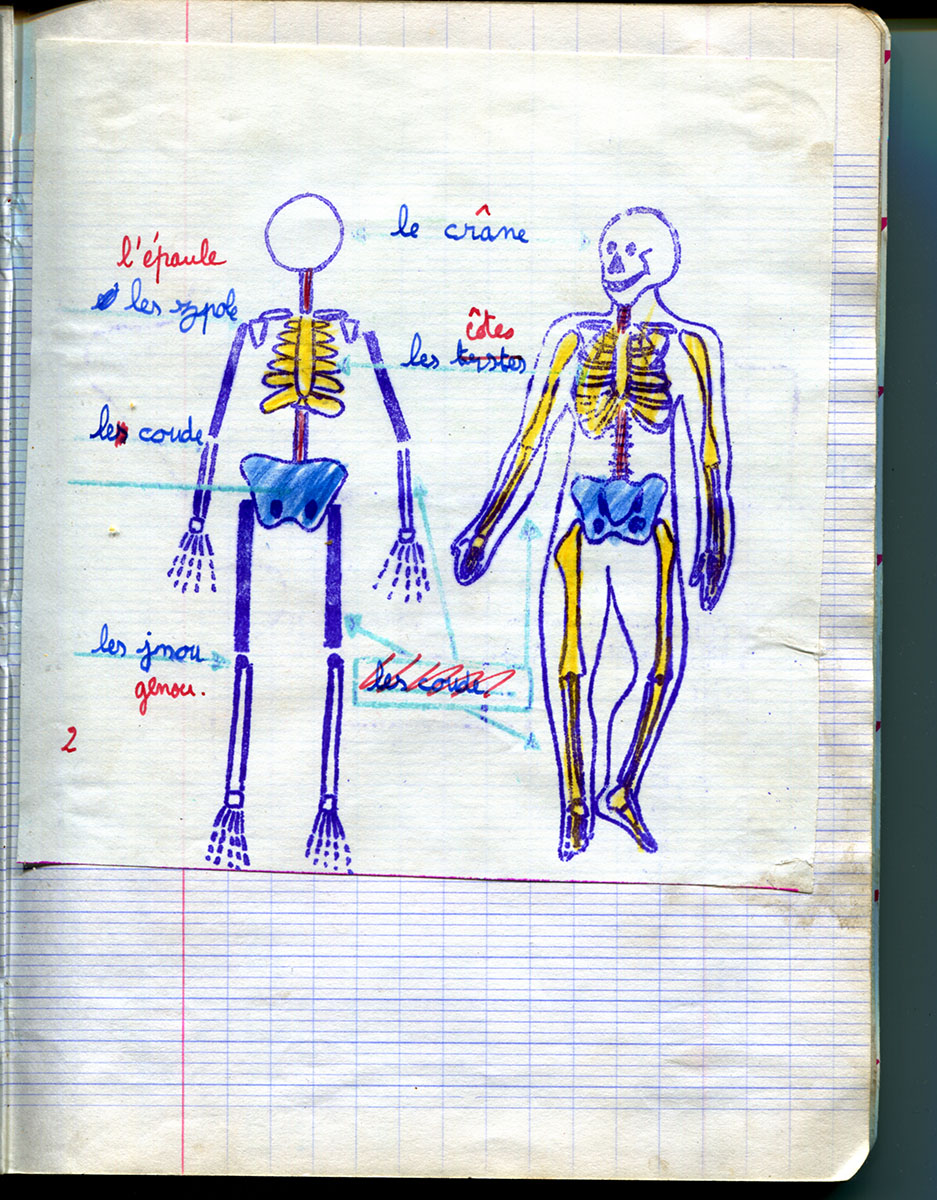 le crâne
l'épaule
les zpole
côtes
les terstes
les coude
les jnou
genou.
les coude
2